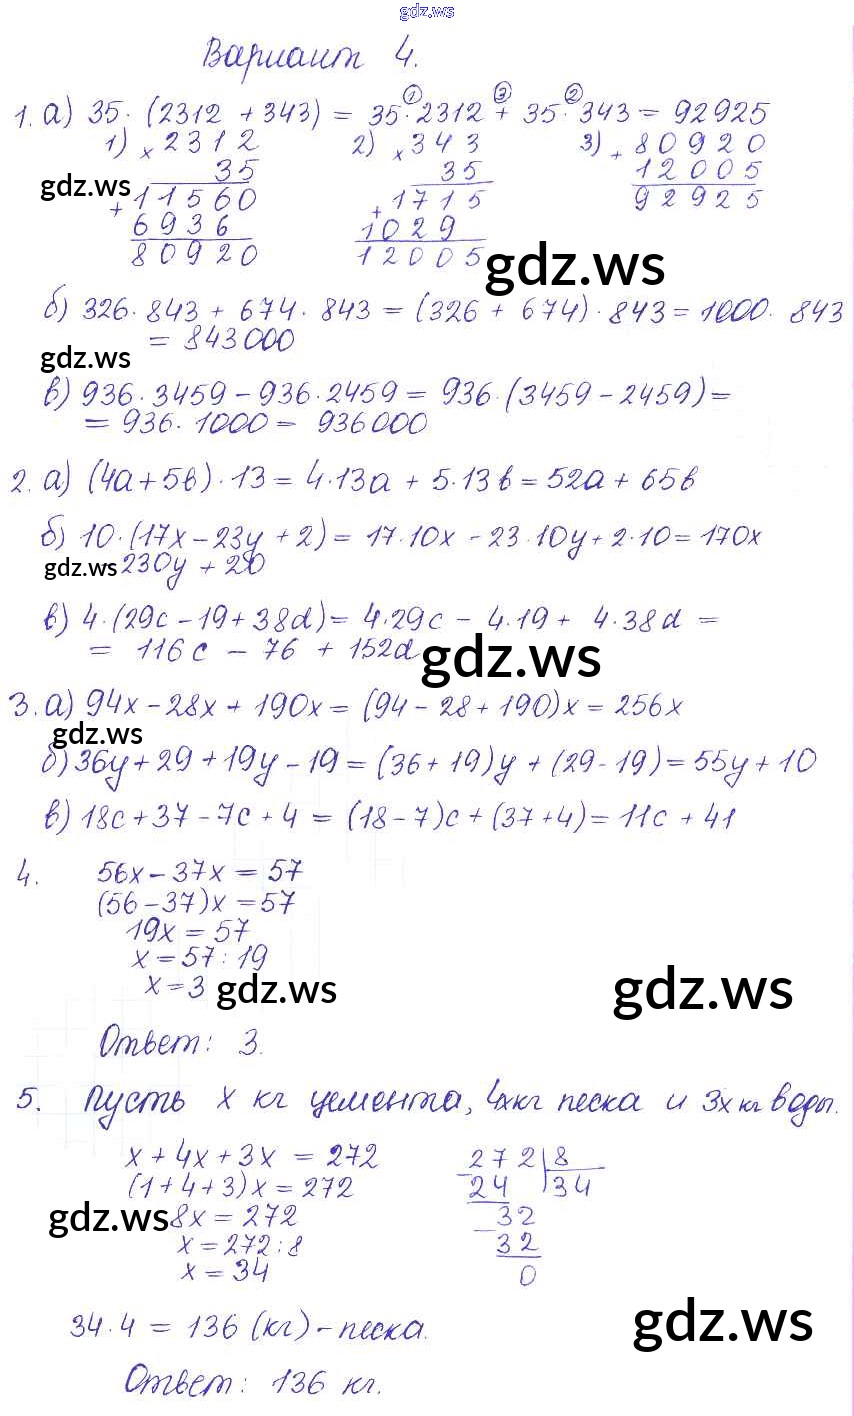 gdz.ws
Вариант 4.
1. а) 35·(2312 + 343) = 35·2312 + 35·343 = 92925
① ③ ②
1) × 2312 2) × 343 3) + 80920
35 35 12005
gdz.ws + 11560 + 1715 92925
6936 1029
80920 12005 gdz.ws
б) 326·843 + 674·843 = (326 + 674)·843 = 1000·843
= 843000
gdz.ws
в) 936·3459 - 936·2459 = 936·(3459 - 2459) =
= 936·1000 = 936000
2. а) (4a + 5b)·13 = 4·13a + 5·13b = 52a + 65b
б) 10·(17x - 23y + 2) = 17·10x - 23·10y + 2·10 = 170x
gdz.ws 230y + 20
в) 4·(29c - 19 + 38d) = 4·29c - 4·19 + 4·38d =
= 116c - 76 + 152d gdz.ws
3. а) 94x - 28x + 190x = (94 - 28 + 190)x = 256x
gdz.ws
б) 36y + 29 + 19y - 19 = (36 + 19)y + (29 - 19) = 55y + 10
в) 18c + 37 - 7c + 4 = (18 - 7)c + (37 + 4) = 11c + 41
4. 56x - 37x = 57
(56 - 37)x = 57
19x = 57
x = 57 : 19
x = 3 gdz.ws gdz.ws
Ответ: 3.
5. Пусть x кг цемента, 4x кг песка и 3x кг воды.
x + 4x + 3x = 272 272 | 8
(1 + 4 + 3)x = 272 - 24 | 34
gdz.ws 8x = 272 - 32
x = 272 : 8 32
x = 34 0
34·4 = 136 (кг) - песка.
gdz.ws
Ответ: 136 кг.